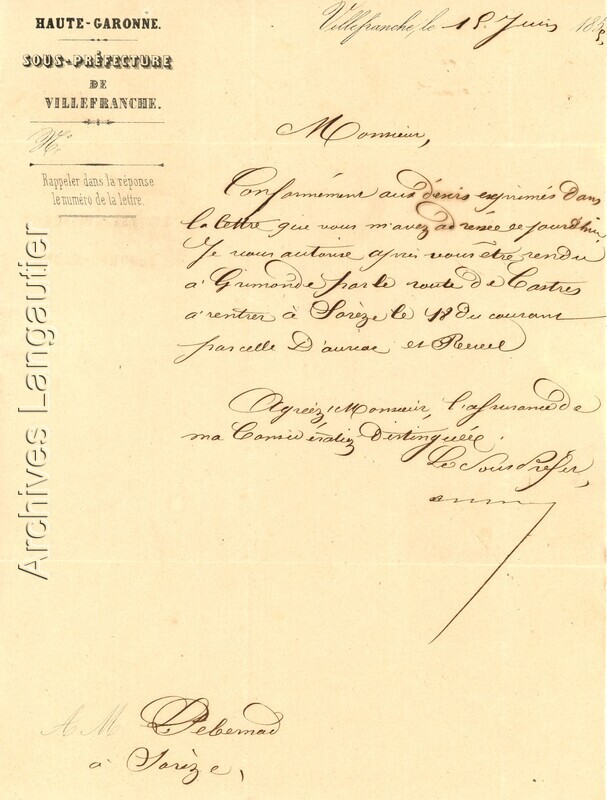 HAUTE-GARONNE.
SOUS-PRÉFECTURE
DE
VILLEFRANCHE.
N.º
Rappeler dans la réponse
le numéro de la lettre.
Villefranche, le 15 Juin 185
Monsieur,
Conformément aux désirs exprimés dans
la lettre que vous m'avez adressée ce jourd'hui,
Je vous autorise après vous être rendu
à Grimonde par le route de Castres
a rentrer à Sorèze le 18 du courant
par celle D'auriac et Revel
Agréez, Monsieur, l'assurance de
ma Considération Distinguée.
Le Sous Préfet,
A M
à Sorèze,
Archives Langautier